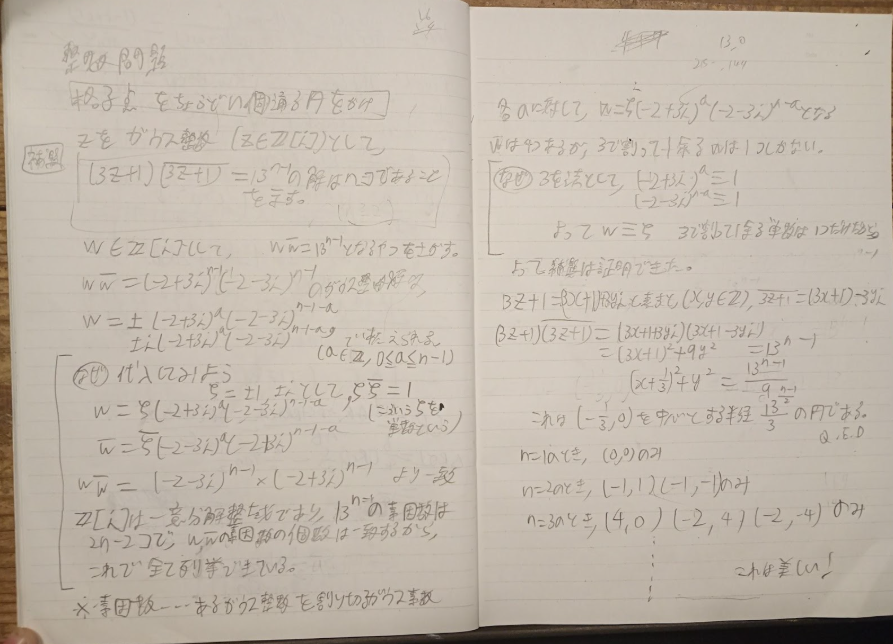 整数問題
格子点をちょうどn個通る円をかけ
zをガウス整数 (z∈ℤ[i])として,
補題
(3z+1)(\overline{3z+1})=13^{n-1}の解はnコであること
を示す。
w∈ℤ[i]として, w\overline{w}=13^{n-1}となるやつをさがす。
w\overline{w}=(-2+3i)^{n-1}(-2-3i)^{n-1}のガウス整数解は,
w=±(-2+3i)^a(-2-3i)^{n-1-a}
±i(-2+3i)^a(-2-3i)^{n-1-a}
で与えられる
(a∈ℤ, 0≦a≦n-1)
なぜ 代入してみよう
ξ=±1,±iとして, ξ\overline{ξ}=1
w=ξ(-2+3i)^a(-2-3i)^{n-1-a} (こういうξを
単数という)
\overline{w}=\overline{ξ}(-2-3i)^a(-2+3i)^{n-1-a}
w\overline{w}=(-2-3i)^{n-1}×(-2+3i)^{n-1} より一致
ℤ[i]は一意分解整域であり, 13^{n-1}の素因数は
2n-2コで, w,\overline{w}の素因数の個数は一致するから,
これで全て列挙できている。
※素因数……あるガウス整数を割り切るガウス素数
13,0
各aに対して, w=ξ(-2+3i)^a(-2-3i)^{n-1-a}となる
wは4つあるが, 3で割って1余るwは1つしかない。
なぜ 3を法として, (-2+3i)^a≡1
(-2-3i)^{n-1-a}≡1
よって w≡ξ 3で割って1余る単数は1つだけだから
よって補題は証明できた。
3z+1=(3x+1)+3yiと表すと(x,y∈ℤ), \overline{3z+1}=(3x+1)-3yi
(3z+1)(\overline{3z+1})=(3x+1+3yi)(3x+1-3yi)
=(3x+1)²+9y² =13^{n-1}
(x+1/3)²+y²=13^{n-1}/9
これは(-1/3,0)を中心とする半径 13^{(n-1)/2}/3 の円である。
Q.E.D
n=1のとき, (0,0)のみ
n=2のとき, (-1,1)(-1,-1)のみ
n=3のとき, (4,0) (-2,4) (-2,-4) のみ
これは美しい!